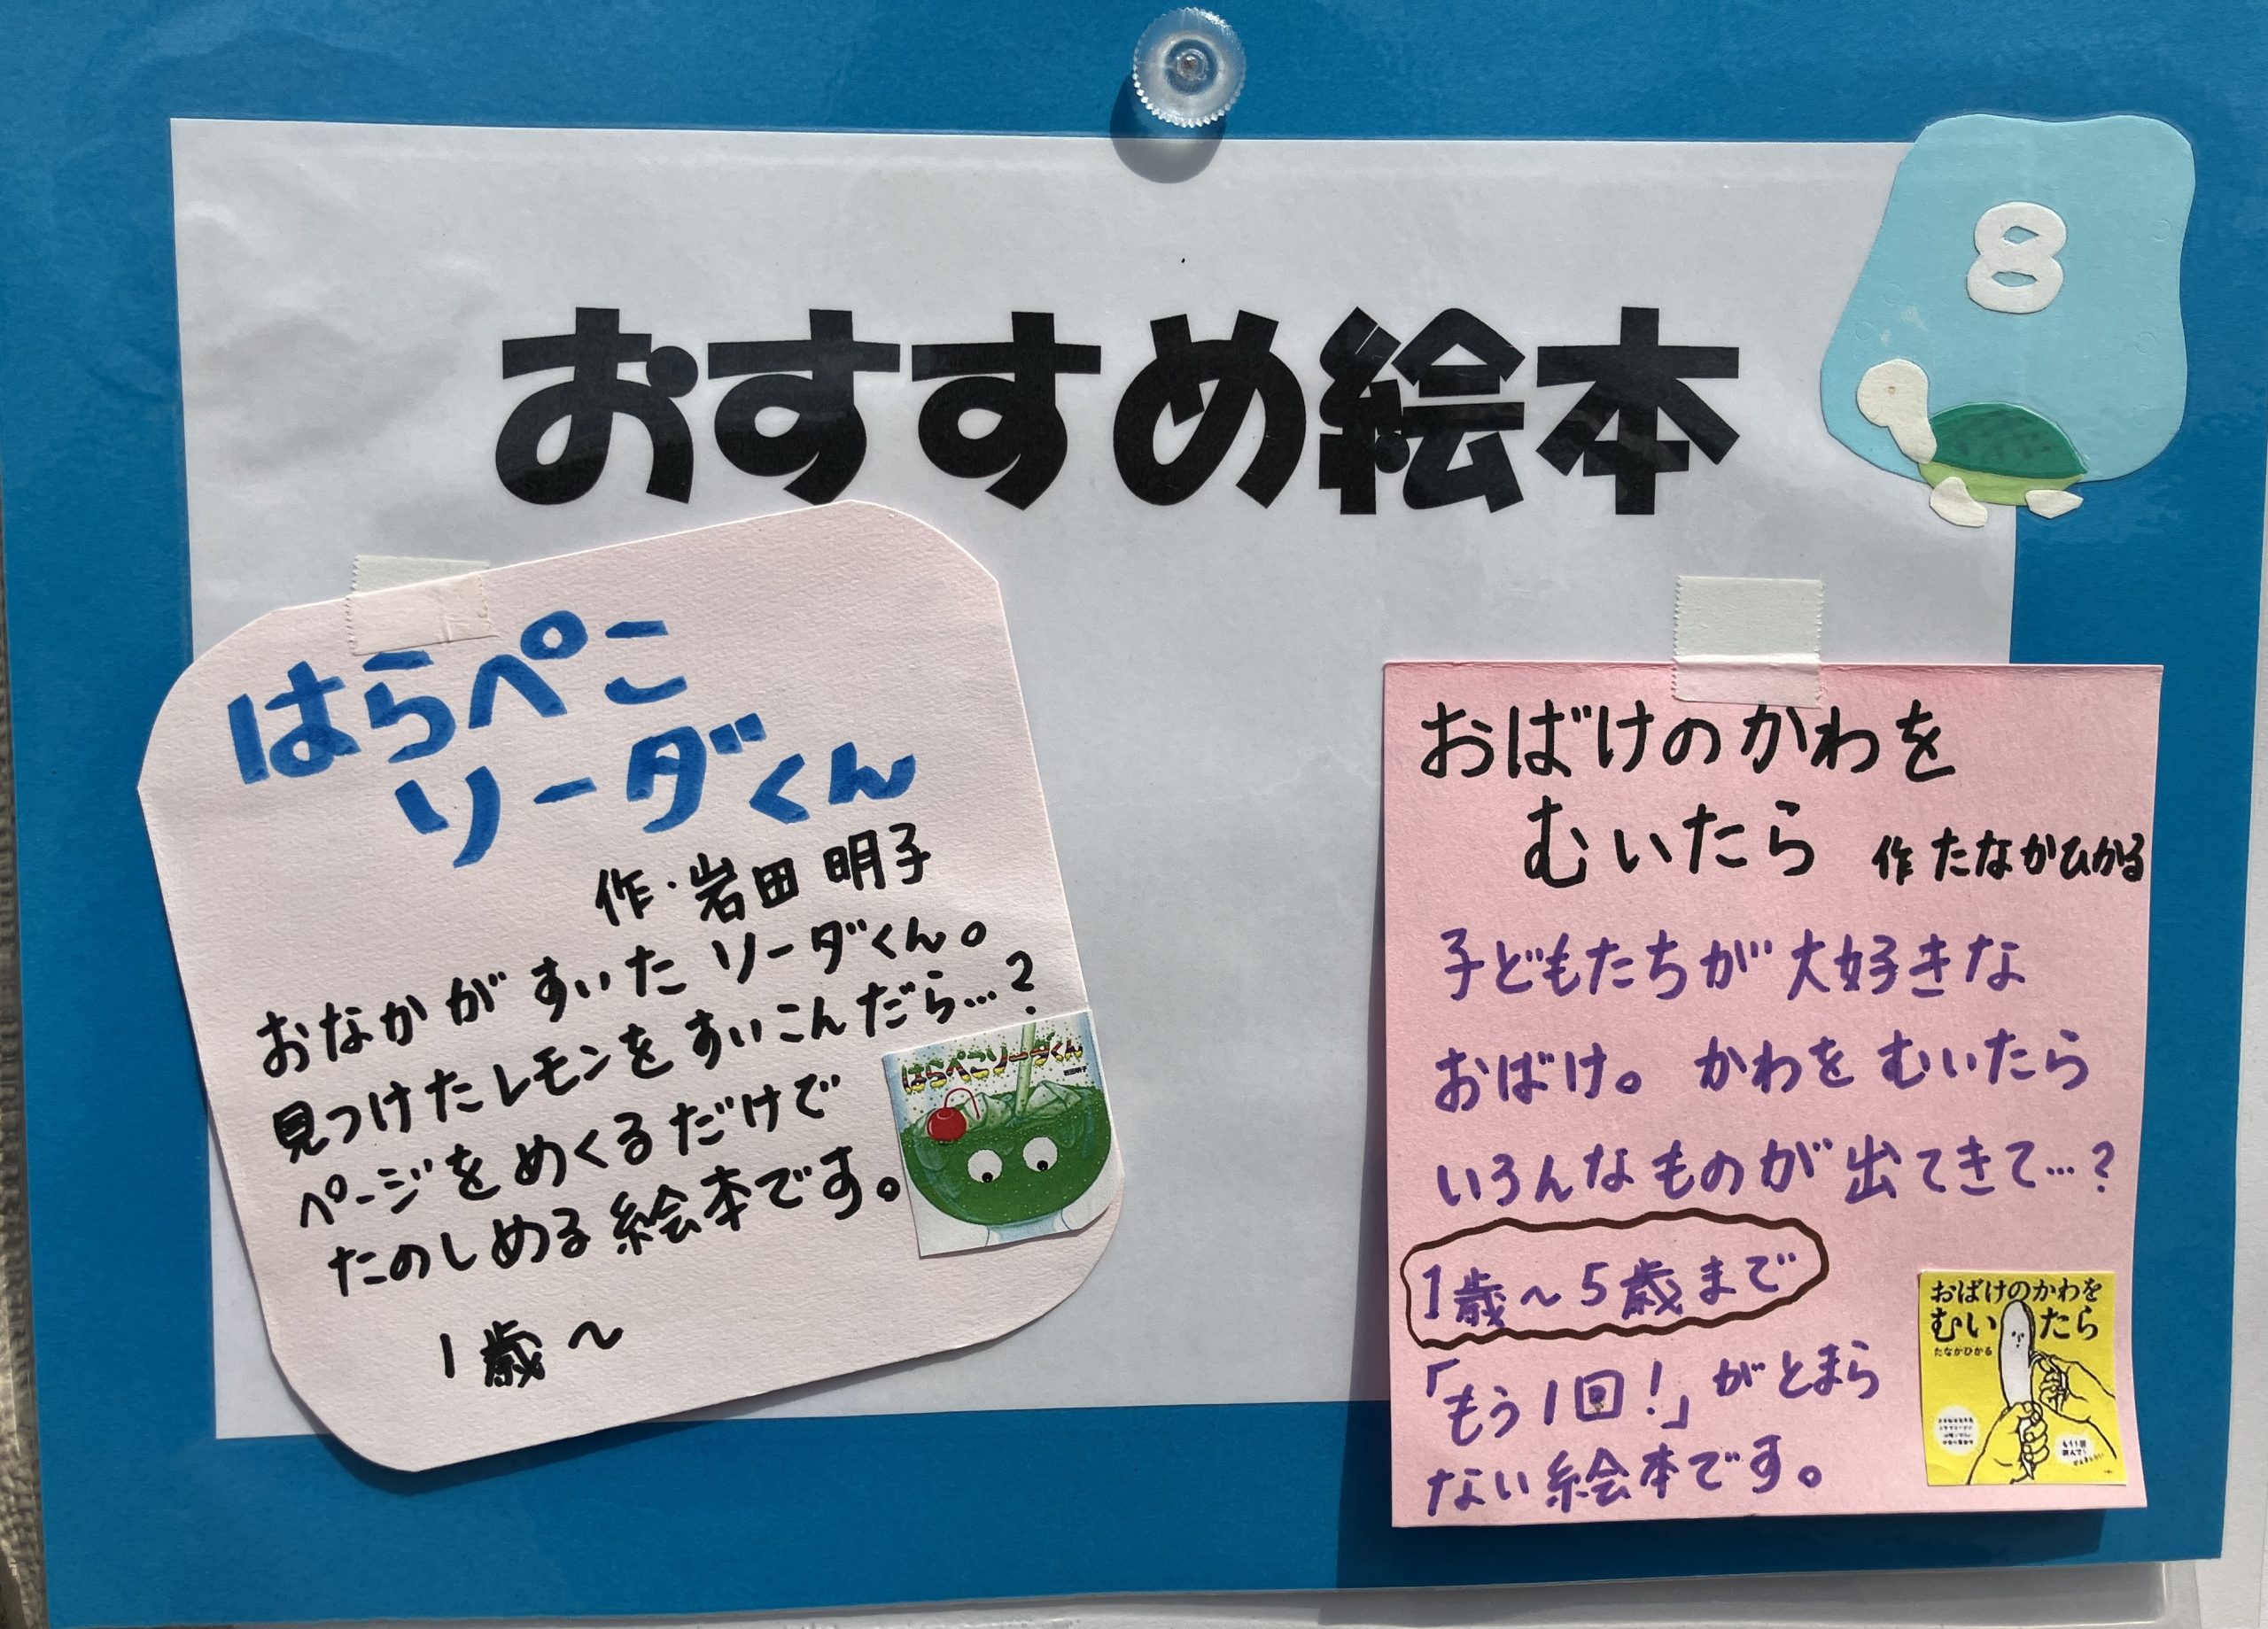 8
おすすめ絵本
はらぺこ
ソーダくん
作・岩田 明子
おなかがすいた ソーダくん。
見つけたレモンをすいこんだら…?
ページをめくるだけで
たのしめる絵本です。
1歳~
はらぺこソーダくん
岩田明子
おばけのかわを
むいたら 作 たなかひかる
子どもたちが大好きな
おばけ。かわをむいたら
いろんなものが出てきて…?
1歳~5歳まで
「もう1回!」がとまら
ない絵本です。
おばけのかわを
むいたら
たなかひかる